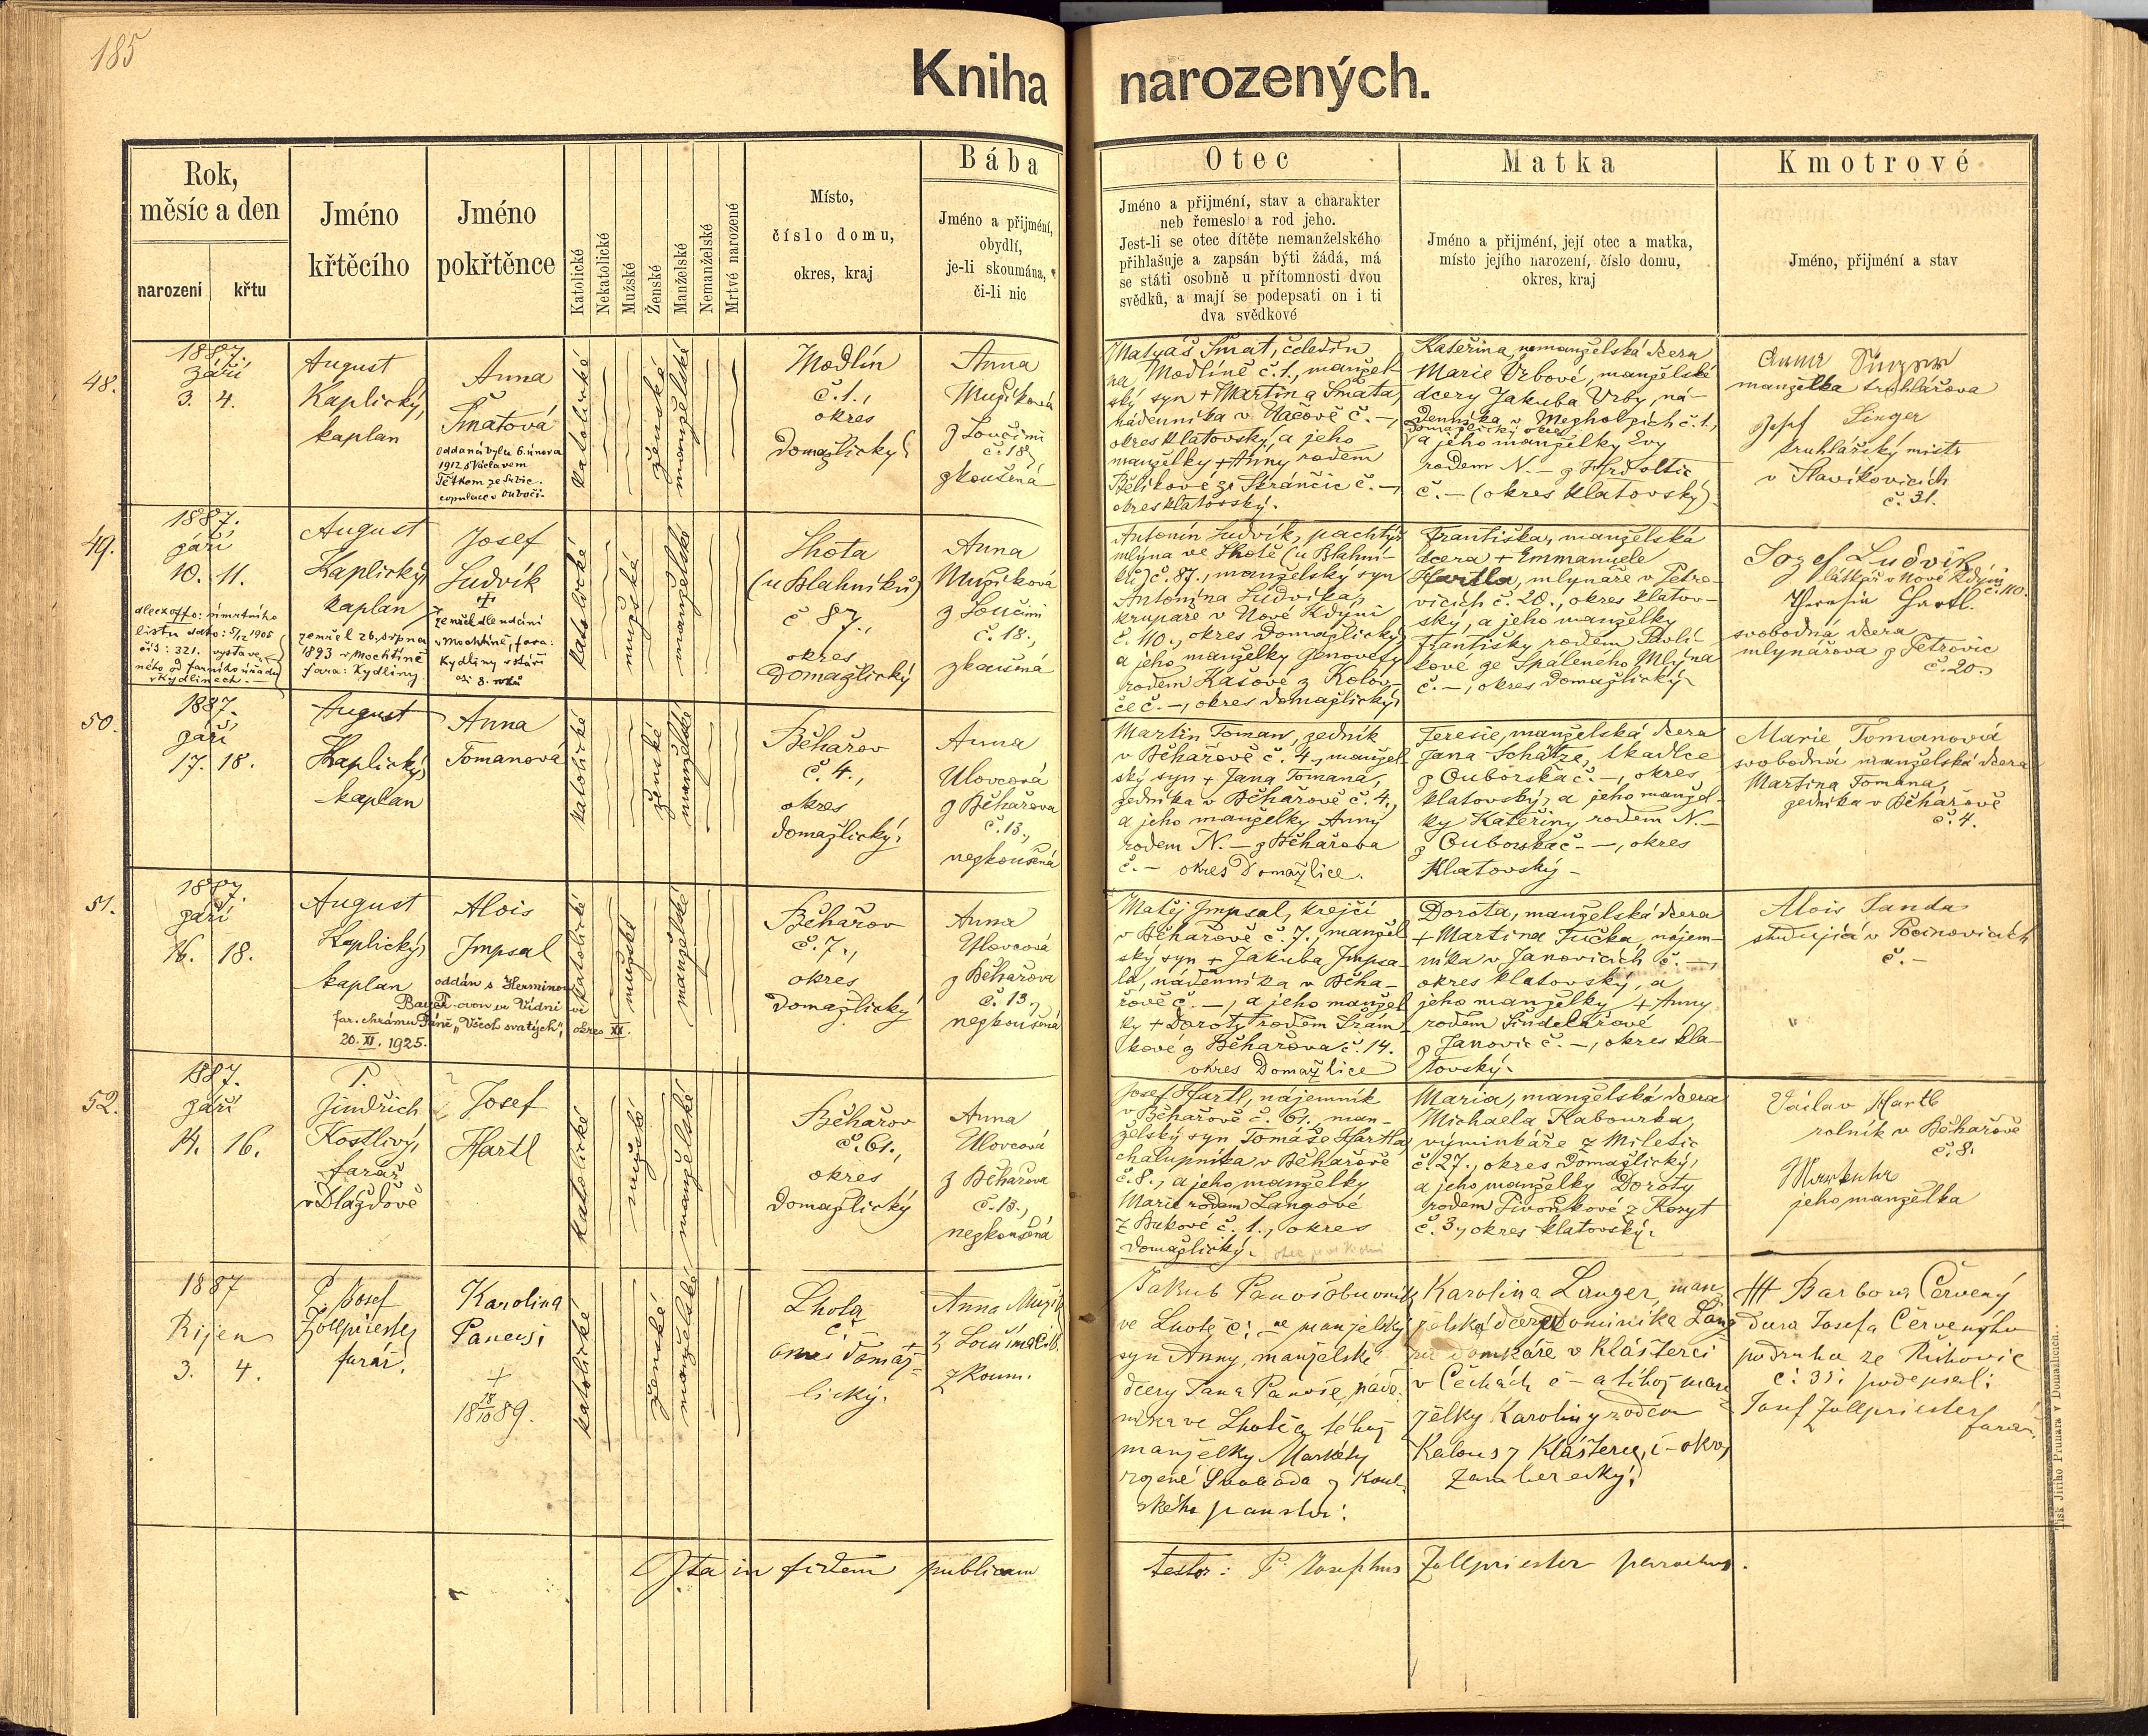 185
Kniha narozených.
Rok,
měsíc a den
narození
křtu
Jméno
křtěcího
Jméno
pokřtěnce
Katolické
Nekatolické
Mužské
Ženské
Manželské
Nemanželské
Mrtvé narozené
Místo,
číslo domu,
okres, kraj
Bába
Jméno a přijmení,
obydlí,
je-li skoumána,
či-li nic
Otec
Jméno a přijmení, stav a charakter
neb řemeslo a rod jeho.
Jest-li se otec dítěte nemanželského
přihlašuje a zapsán býti žádá, má
se státi osobně u přítomnosti dvou
svědků, a mají se podepsati on i ti
dva svědkové
Matka
Jméno a přijmení, její otec a matka,
místo jejího narození, číslo domu,
okres, kraj
Kmotrové
Jméno, přijmení a stav
48.
1887.
září
3. 4.
August
Kaplický,
kaplan
Anna
Šmatová
oddaná byla 6. února
1912 s Václavem
copulace v Ouboči.
katolické
ženské
manželské
Modlín
č. 1.,
okres
domažlický
Anna
Mužíková
z Loučimi
č. 18,
zkoušená
Matyáš Šmat, čeledín
na Modlíně č. 1., manžel-
ský syn + Martina Šmata,
nádenníka v č. –,
okres klatovský, a jeho
manželky + Anny rodem
Bělíkové ze Škránčic č. –,
okres klatovský.
Kateřina, nemanželská dcera
Marie Vrbové, manželské
dcery Jakuba Vrby, ná-
denníka v Mezholzích č. 1.,
domažlický okres
a jeho manželky Evy
rodem N. – z
č. – (okres klatovský)
Anna Singer
manželka truhlářova
Josef Singer
truhlářský mistr
v Slavíkovicích
č. 31.
49.
1887.
září
10. 11.
August
Kaplický,
kaplan
Josef
Ludvík
+
zemřel 26. srpna
1893 v Mochtíně
fara: Kydliny.
v Mochtíně, fara:
Kydliny v stáří
listu dato: 5/12 1905
čís: 321. vystave-
ného od farního úřadu
v Kydlinech. –
katolické
mužské
manželské
Lhota
(u Blahníků)
č 87.,
okres
Domažlický
Anna
Mužíková
z Loučimi
č. 18.,
zkoušená
Antonín Ludvík, pachtýř
mlýna ve Lhotě (u Blahní-
ků) č. 87., manželský syn
Antonína Ludvíka,
krupaře v Nové Kdýni
č. 110., okres Domažlický
a jeho manželky Genovefy
rodem Kašové z Kolov-
če č. –, okres domažlický
Františka, manželská
dcera + Emmanuele
Hartla, mlynáře v Petro-
vicích č. 20., okres klatov-
ský, a jeho manželky
Františky rodem Pavlí-
kové ze Spáleného Mlýna
č. –, okres domažlický
Jozef Ludvik
látkář v Nové Kdýni
č. 110.
Theresia Hartl.
svobodná dcera
mlynářova z Petrovic
č. 20.
50.
1887.
září
17. 18.
August
Kaplický,
kaplan
Anna
Tomanová
katolické
ženské
manželské
Běhařov
č. 4.,
okres
domažlický.
Anna
Ulovcová
z Běhařova
č. 13.,
nezkoušená
Martin Toman, zedník
v Běhařově č. 4., manžel-
ský syn + Jana Tomana,
zedníka v Běhařově č. 4.,
a jeho manželky Anny
rodem N. – z Běhařova
č. – okres Domažlice.
Teresie, manželská dcera
Jana Schätze, tkadlce
z Ouborska č. –, okres
klatovský, a jeho manžel-
ky Kateřiny rodem N. –
z Ouborska č. –, okres
Klatovský –
Marie Tomanová
svobodná manželská dcera
Martina Tomana,
zedníka v Běhařově
č. 4.
51.
1887.
září
16. 18.
August
Kaplický,
kaplan
Alois
Impsal
oddán s Herminou
ve Vídni ve
far. chrámu Páně „Všech svatých", okres XX.
20. XI. 1925.
katolické
mužské
manželské
Běhařov
č. 7.,
okres
Domažlický
Anna
Ulovcová
z Běhařova
č. 13.,
nezkoušená
Matěj Impsal, krejčí
v Běhařově č. 7., manžel-
ský syn + Jakuba Impsa-
la, nádenníka v Běha-
řově č. –, a jeho manžel-
ky + Doroty rodem Šrám-
kové z Běhařova č. 14.
okres Domažlice
Dorota, manželská dcera
+ Martina Tučka, nájem-
níka v Janovicích č. –,
okres klatovský, a
jeho manželky + Anny
rodem Šindelářové
z Janovic č. –, okres kla-
tovský.
Alois Janda
studující v Pocinovicích
č. –
52.
1887.
září
14. 16.
P.
Jindřich
Kostlivý,
farář
v Dlažďově
Josef
Hartl
katolické
mužské
manželské
Běhařov
č. 61.,
okres
domažlický
Anna
Ulovcová
z Běhařova
č. 13.,
nezkoušená
Josef Hartl, nájemník
v Běhařově č. 61., man-
želský syn Tomáše Hartla,
chalupníka v Běhařově
č. 8., a jeho manželky
Marie rodem Langové
z Bukové č. 1., okres
domažlický.
Maria, manželská dcera
Michaela Kabourka,
výminkáře z Miletic
č. 27., okres Domažlický,
a jeho manželky Doroty
rodem Pivoňkové z Koryt
č. 3., okres klatovský.
Václav Hartl
rolník v Běhařově
č. 8.
jeho manželka
1887
Říjen
3. 4.
P. Josef
Zollpriester
farář.
Karolina
Panoš
+
18 18/10 89.
katolické
ženské
manželské
Lhota
č. –
okres Domaž-
lický.
Anna Mužík
z Loučima č. 18.
zkoum.
Jakub Panoš obuvník
ve Lhotě č. – ne manželský
syn Anny, manželské
dcery Jana Panoše,
ve Lhotě a téhož
manželky Markéty
rozené Svoboda z Kout-
ského panství.
Karolina Langer, man-
želská dcera Dominika Lang-
domkáře v Klášterci
v Čechách č – a téhož man-
želky Karoliny rodem
Kalous z Klášterce, č – okres
Žamberecký.
+++ Barbora Červený
dcera Josefa Červeného
podruha ze
č. 35. podepsal:
Josef Zollpriester
farář.
Ita in fidem publicam
testor: P. Josephus Zollpriester parochus.
Tisk Jiřího Prunara v Domažlicích.